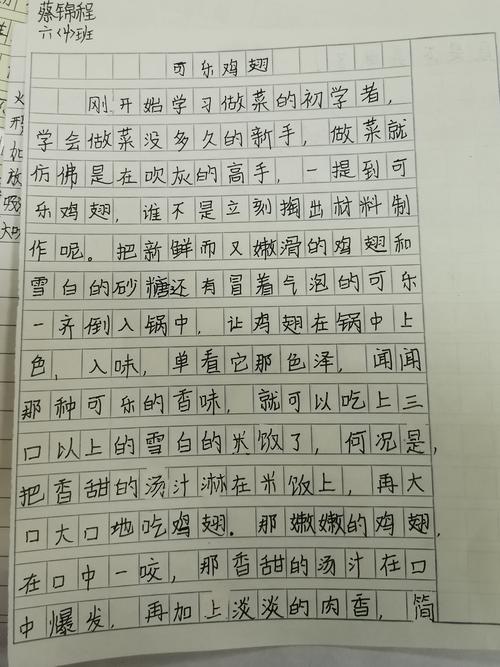 蔡锦程
六〈4〉班
可乐鸡翅
刚开始学习做菜的初学者，
学会做菜没多久的新手，做菜就
仿佛是在吹灰的高手，一提到可
乐鸡翅，谁不是立刻掏出材料制
作呢。把新鲜而又嫩滑的鸡翅和
雪白的砂糖还有冒着气泡的可乐
一齐倒入锅中，让鸡翅在锅中上
色，入味，单看它那色泽，闻闻
那种可乐的香味，就可以吃上三
口以上的雪白的米饭了，何况是，
把香甜的汤汁淋在米饭上，再大
口大口地吃鸡翅．那嫩嫩的鸡翅，
在口中一咬，那香甜的汤汁在口
中爆发，再加上淡淡的肉香，简